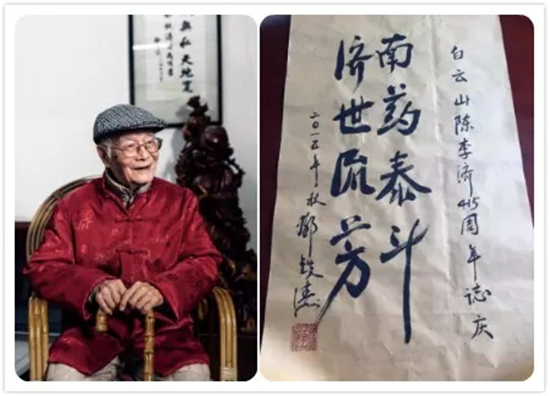 無私天地寬
白云山陈李济415周年誌庆
南药泰斗
济世流芳
二〇一五年秋 鄧铁涛